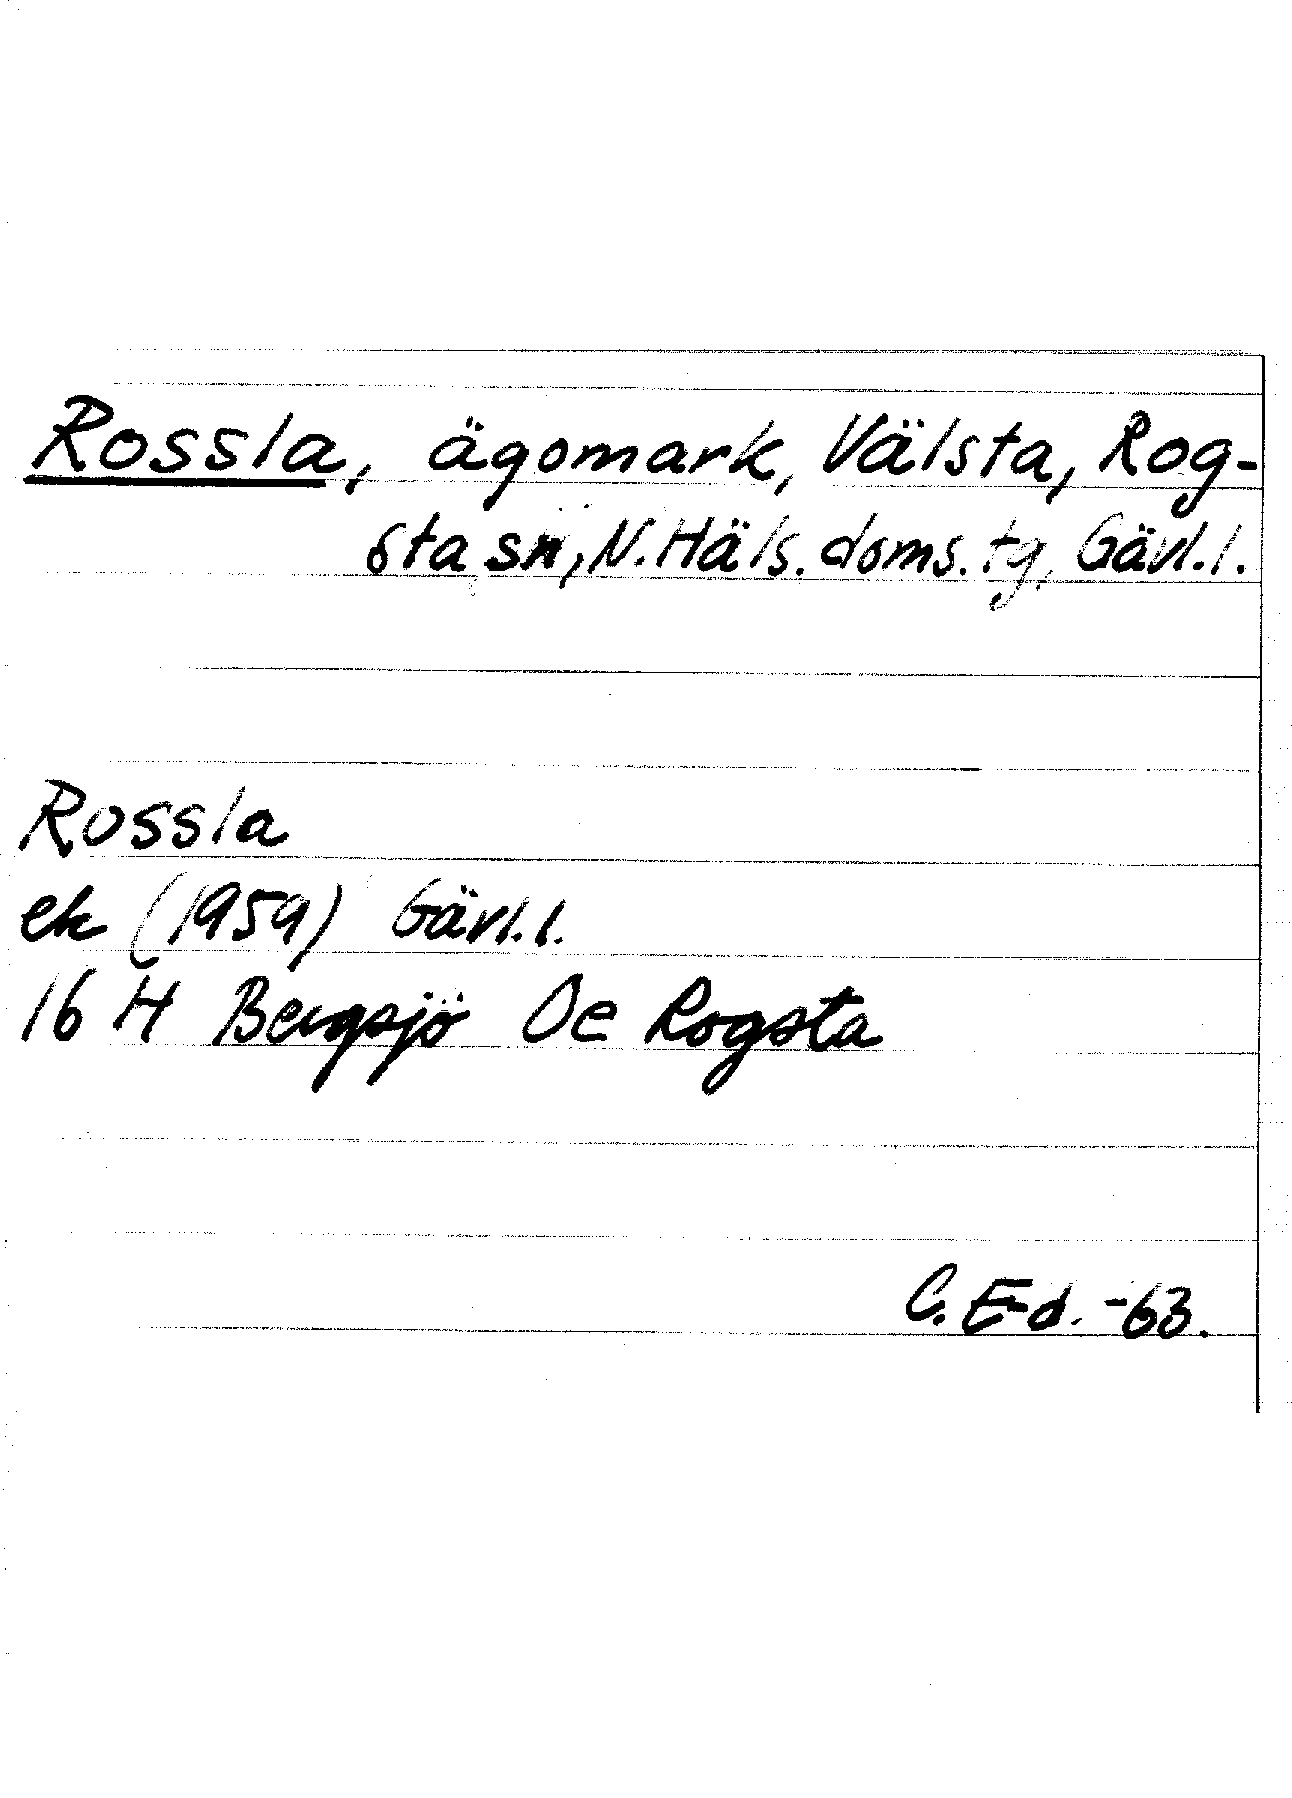 Rossla, ägomark, Välsta, Rog-
sta sn, N. Häls. doms. tg, Gävl. l.
Rossla
ek (1959) Gävl. l.
16 H Bergsjö Oe Rogsta
C. Ed. -63.